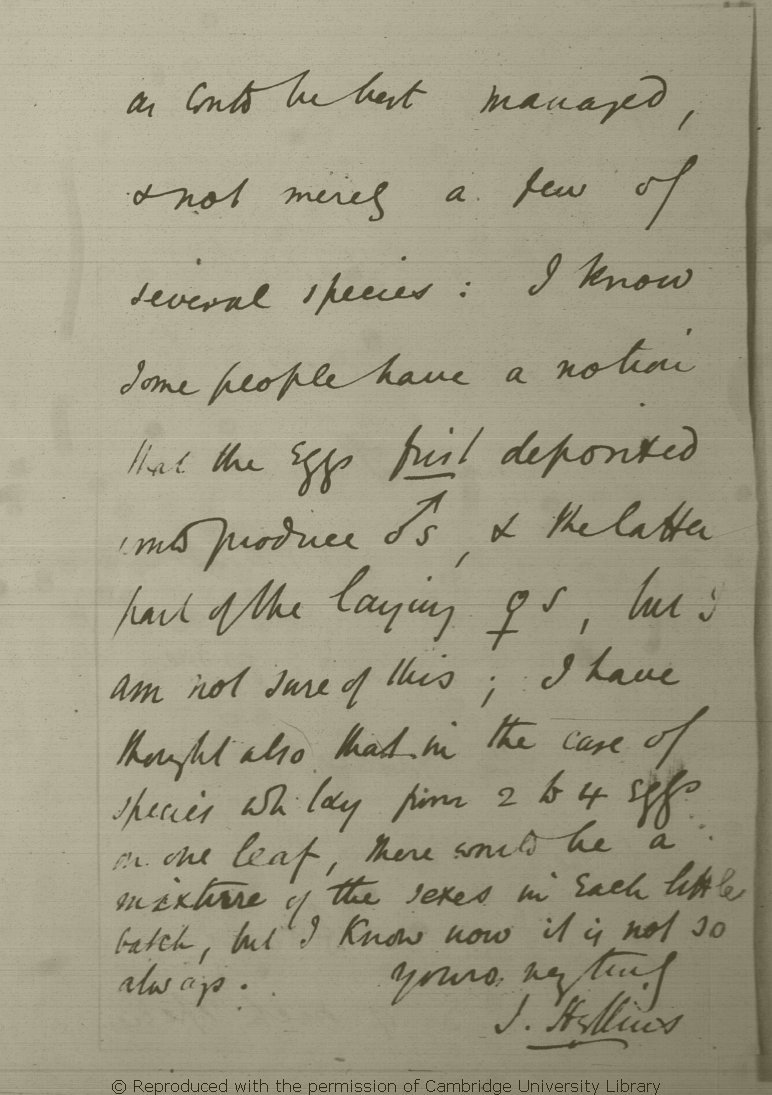 as could be best managed,
& not merely a few of
several species: I know
some people have a notion
that the eggs first deposited
would produce ♂s, & the latter
part of the laying ♀s, but I
am not sure of this; I have
thought also that in the case of
species wh lay from 2 to 4 eggs
on one leaf, there would be a
mixture of the sexes in each little
batch, but I know now it is not so
always. Yours very truly
J. Hellins
© Reproduced with the permission of Cambridge University Library